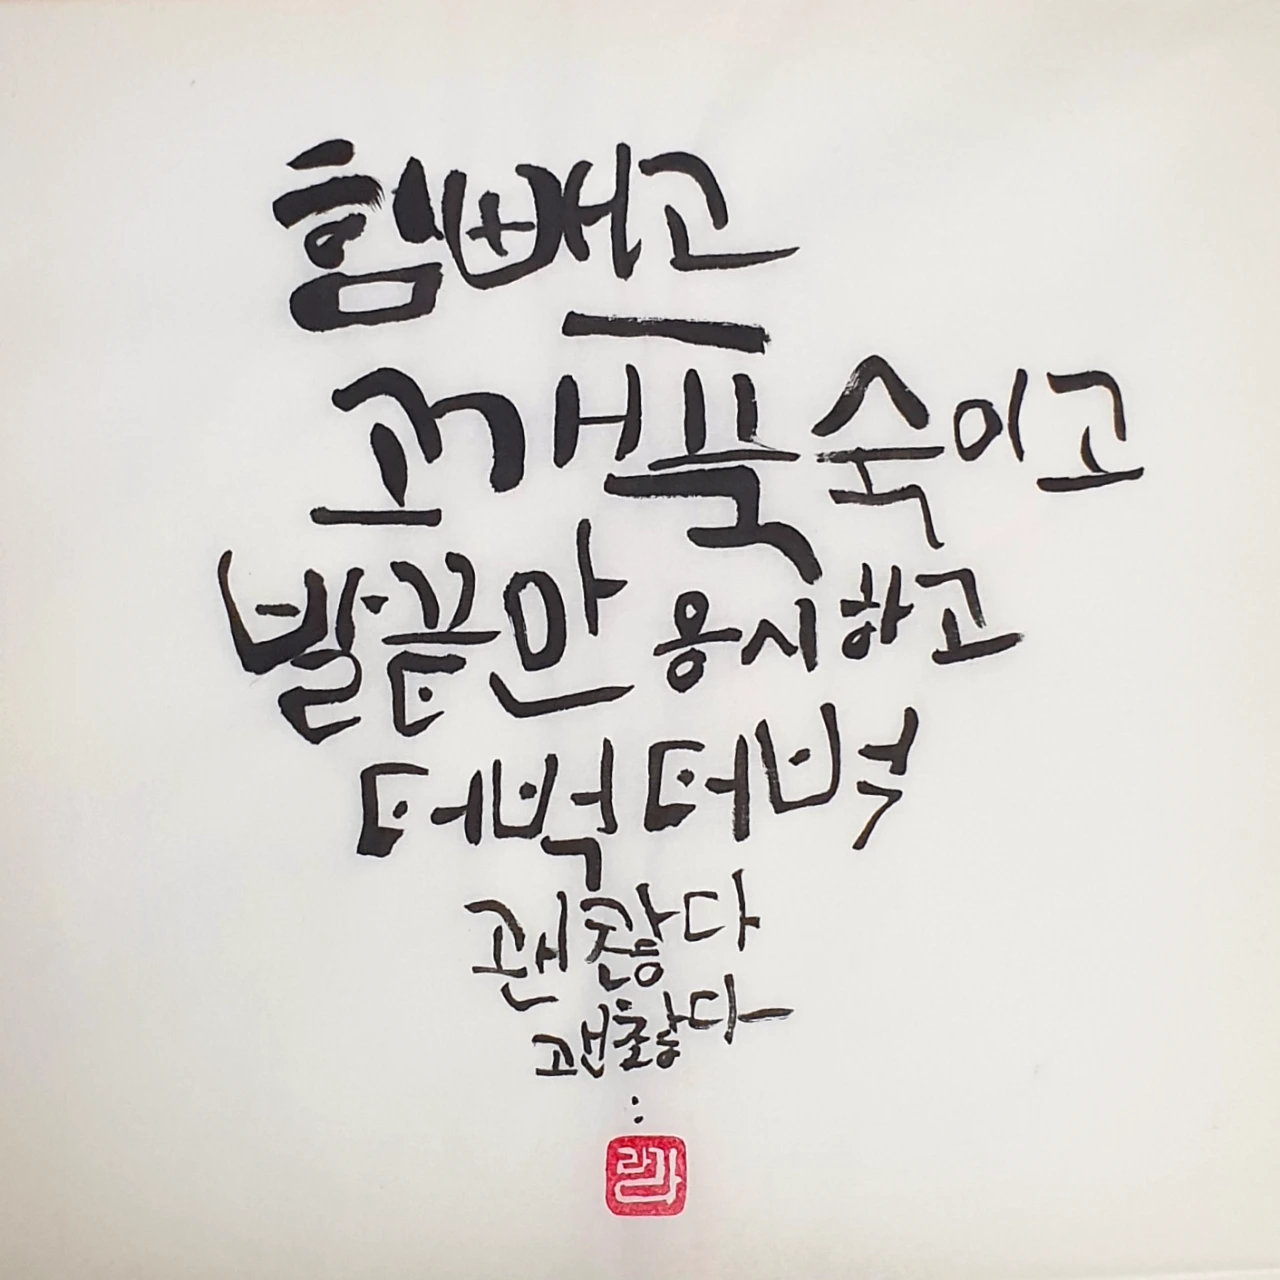 힘빼고
고개푹 숙이고
발끝만 응시하고
터벅터벅
괜찮다
괜찮다
: